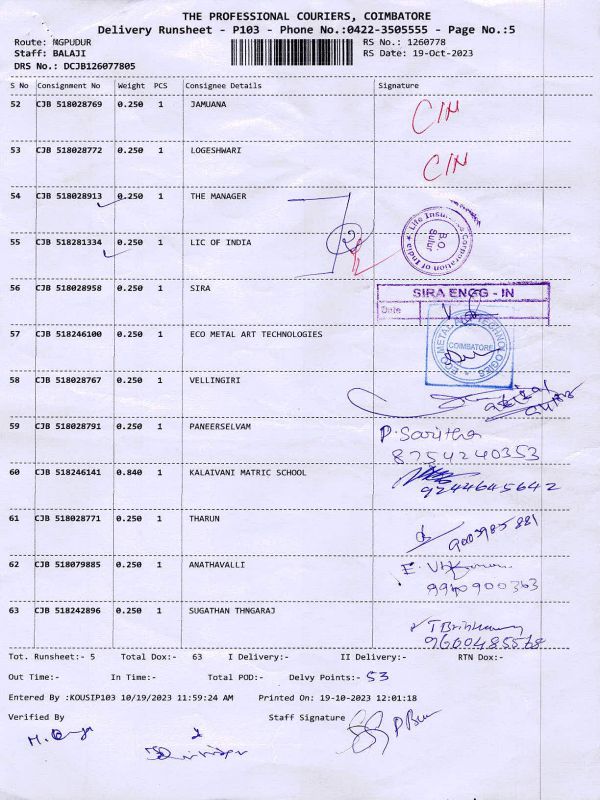 THE PROFESSIONAL COURIERS, COIMBATORE
Delivery Runsheet - P103 - Phone No.:0422-3505555 - Page No.:5
Route: NGPUDUR RS No.: 1260778
Staff: BALAJI RS Date: 19-Oct-2023
DRS No.: DCJB126077805
S No Consignment No Weight PCS Consignee Details Signature
52 CJB 518028769 0.250 1 JAMUANA C/N
53 CJB 518028772 0.250 1 LOGESHWARI C/N
54 CJB 518028913 0.250 1 THE MANAGER
55 CJB 518281334 0.250 1 LIC OF INDIA
Life Insurance Corporation of India
B.O
Sulur
56 CJB 518028958 0.250 1 SIRA
SIRA ENGG - IN
Date
57 CJB 518246100 0.250 1 ECO METAL ART TECHNOLOGIES
ECO METAL ART TECHNOLOGIES
COIMBATORE
58 CJB 518028767 0.250 1 VELLINGIRI
59 CJB 518028791 0.250 1 PANEERSELVAM P. Saritha
8754240353
60 CJB 518246141 0.840 1 KALAIVANI MATRIC SCHOOL
9244645642
61 CJB 518028771 0.250 1 THARUN 9003985881
62 CJB 518079885 0.250 1 ANATHAVALLI
63 CJB 518242896 0.250 1 SUGATHAN THNGARAJ
9600485568
Tot. Runsheet:- 5 Total Dox:- 63 I Delivery:- II Delivery:- RTN Dox:-
Out Time:- In Time:- Total POD:- Delvy Points:- 53
Entered By :KOUSIP103 10/19/2023 11:59:24 AM Printed On: 19-10-2023 12:01:18
Verified By Staff Signature